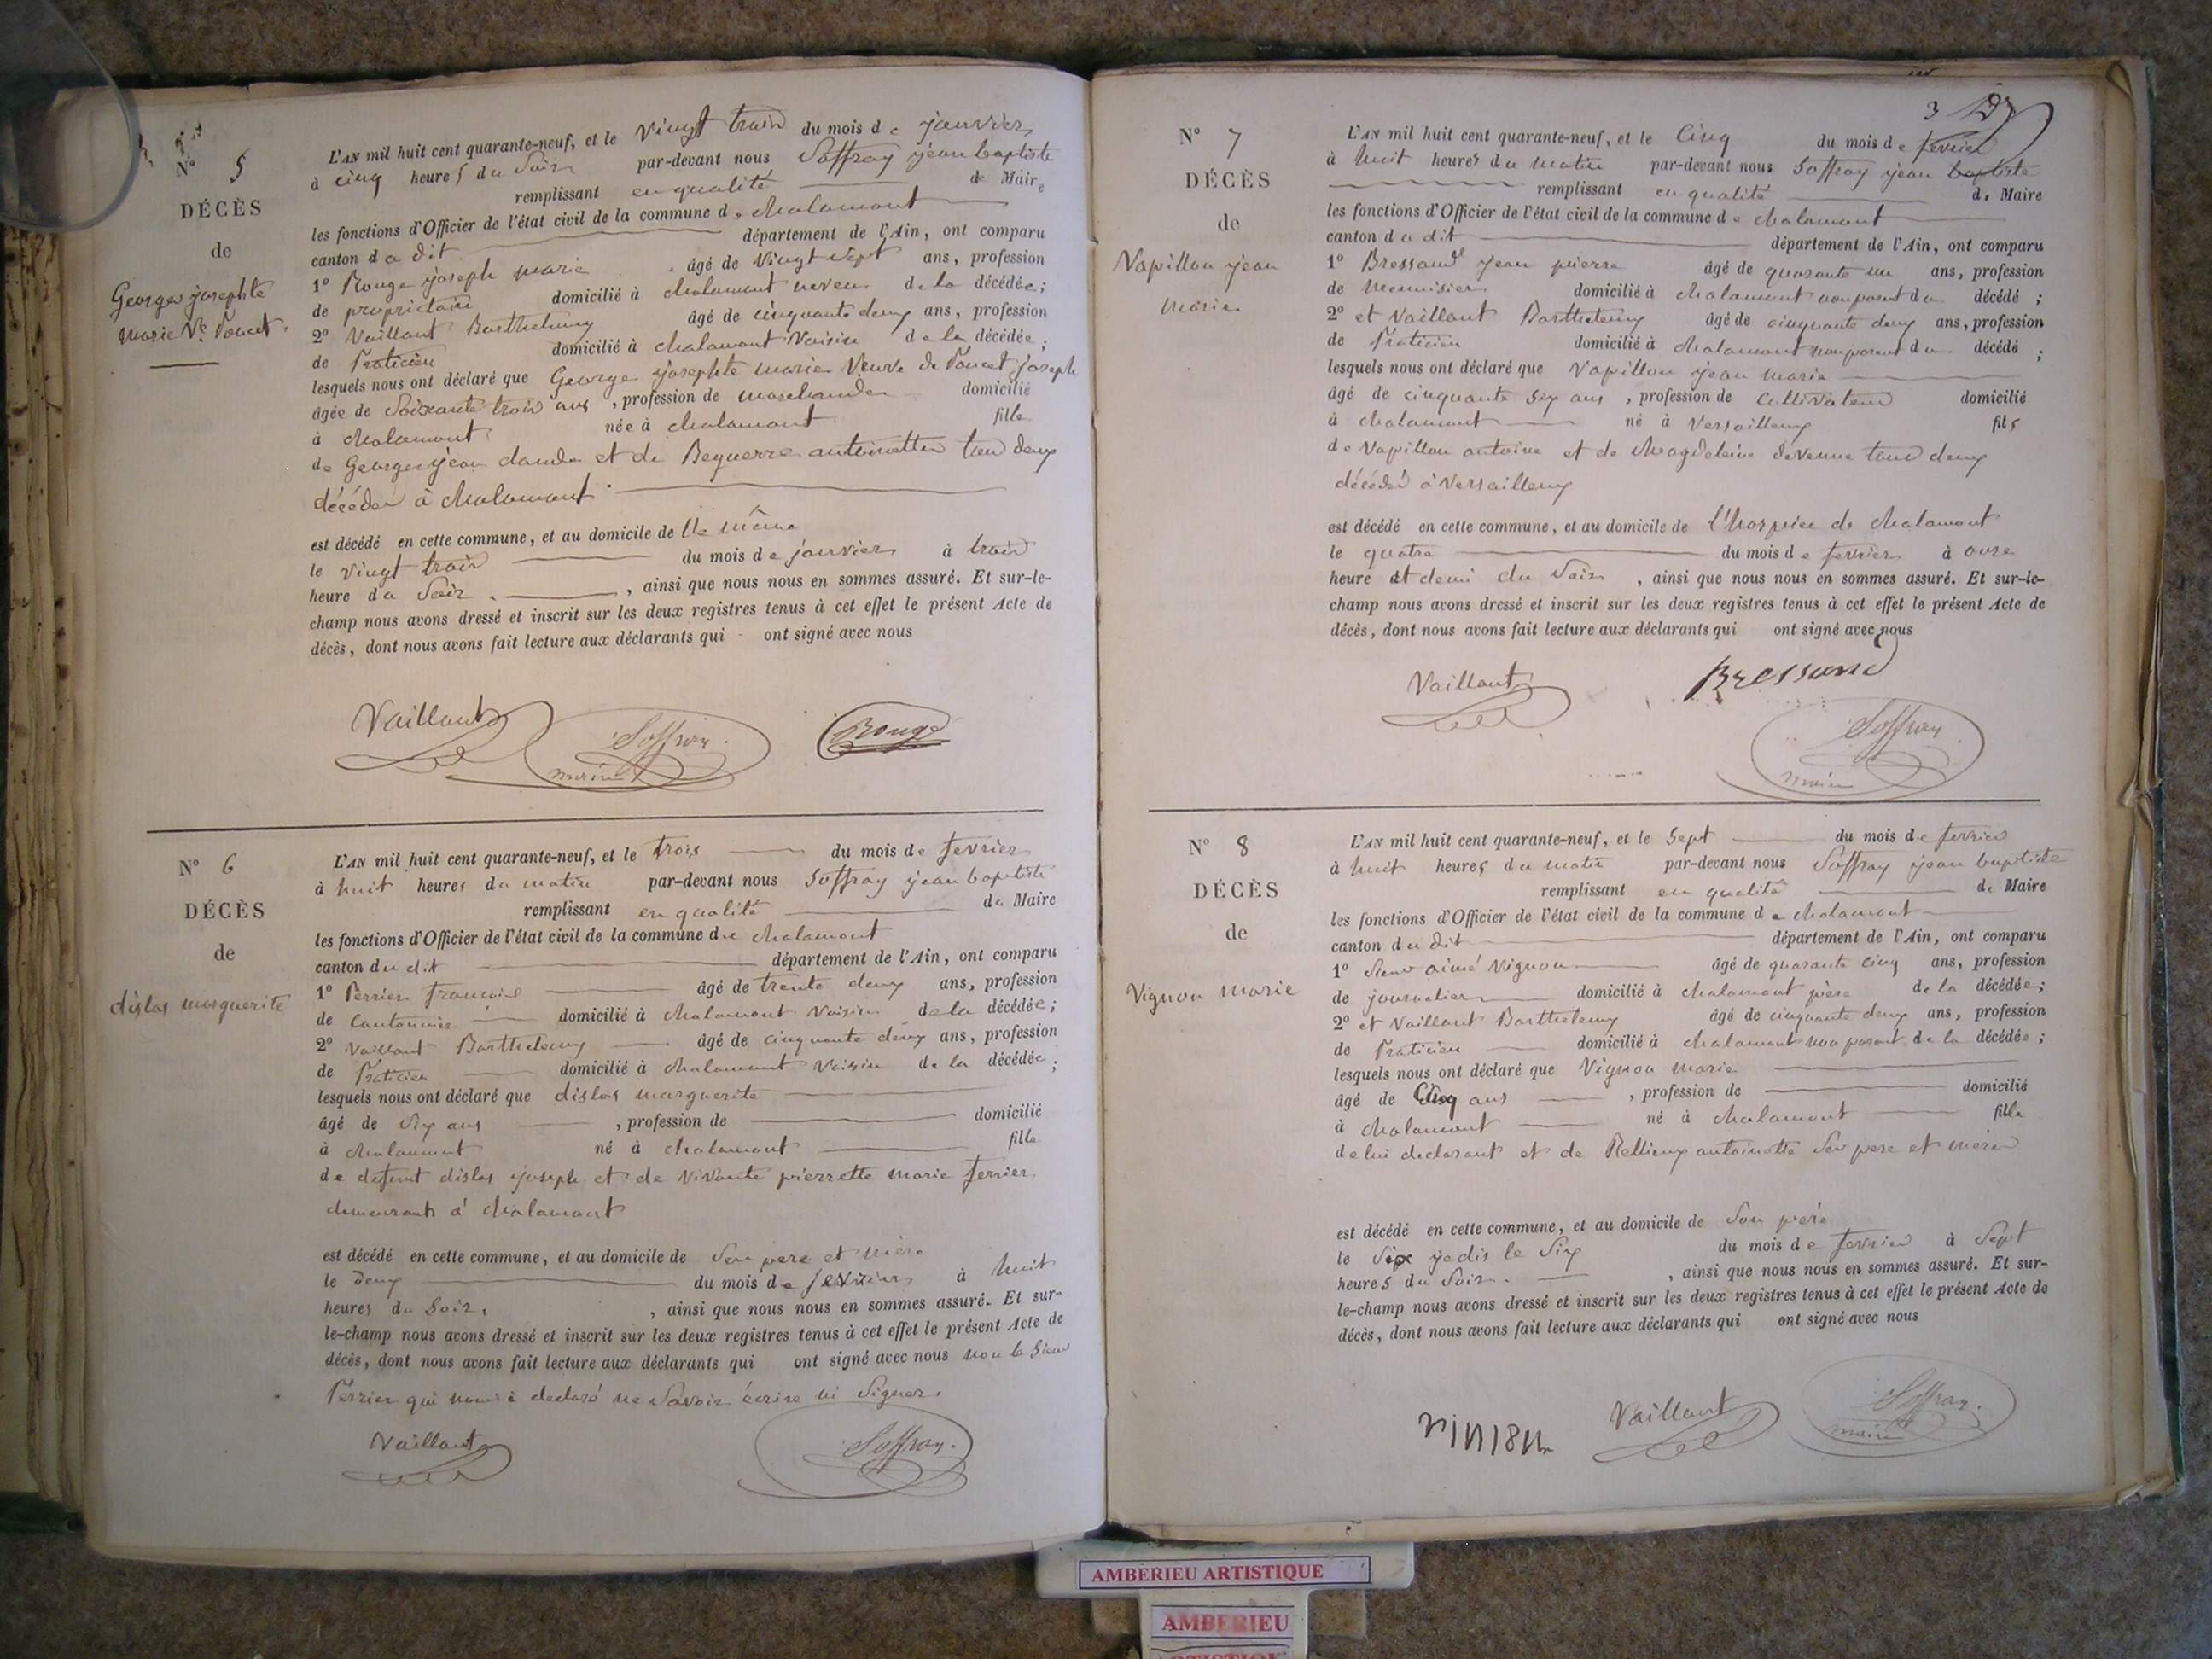 N° 5
DÉCÈS
de
George josephte
marie Ve Poncet
L'AN mil huit cent quarante-neuf, et le Vingt trois du mois de janvier
à cinq heures du Soir par-devant nous Soffray jean baptiste
remplissant en qualité de Maire
les fonctions d'Officier de l'état civil de la commune de chalamont
canton du dit département de l'Ain, ont comparu
1° Rouge joseph marie âgé de Vingt sept ans, profession
de propriétaire domicilié à chalamont neveu de la décédée;
2° Vaillant Barthelemy âgé de cinquante deux ans, profession
de Praticien domicilié à chalamont Voisin de la décédée;
lesquels nous ont déclaré que George josephte marie Veuve de Poncet joseph
âgée de Soixante trois ans, profession de marchande domicilié
à chalamont née à chalamont fille
de George jean claude et de Beguerre antoinette tous deux
décédés à chalamont.
est décédé en cette commune, et au domicile de Elle même
le vingt trois du mois de janvier à trois
heure du Soir, ainsi que nous nous en sommes assuré. Et sur-le-
champ nous avons dressé et inscrit sur les deux registres tenus à cet effet le présent Acte de
décès, dont nous avons fait lecture aux déclarants qui ont signé avec nous
Vaillant Soffray Rouge
maire
N° 6
DÉCÈS
de
dislas marguerite
L'AN mil huit cent quarante-neuf, et le trois du mois de fevrier
à huit heures du matin par-devant nous Soffray jean baptiste
remplissant en qualité de Maire
les fonctions d'Officier de l'état civil de la commune de chalamont
canton du dit département de l'Ain, ont comparu
1° Perrier francois âgé de trente deux ans, profession
de Cantonnier domicilié à chalamont Voisin de la décédée;
2° Vaillant Barthelemy âgé de cinquante deux ans, profession
de Praticien domicilié à chalamont Voisin de la décédée;
lesquels nous ont déclaré que dislas marguerite
âgé de Six ans, profession de domicilié
à chalamont né à chalamont fille
de defunt dislas joseph et de vivante pierrette marie ferrier
demeurants à chalamont
est décédé en cette commune, et au domicile de Ses pere et mère
le deux du mois de fevrier à huit
heures du Soir, ainsi que nous nous en sommes assuré. Et sur-
le-champ nous avons dressé et inscrit sur les deux registres tenus à cet effet le présent Acte de
décès, dont nous avons fait lecture aux déclarants qui ont signé avec nous non le Sieur
Perrier qui nous à declaré ne Savoir écrire ni Signer.
Vaillant Soffray.
3
N° 7
DÉCÈS
de
Vapillon jean
marie
L'AN mil huit cent quarante-neuf, et le Cinq du mois de fevrier
à huit heures du matin par-devant nous Soffray jean baptiste
remplissant en qualité de Maire
les fonctions d'Officier de l'état civil de la commune de chalamont
canton du dit département de l'Ain, ont comparu
1° Bressand jean pierre âgé de quarante un ans, profession
de Menuisier domicilié à chalamont non parent du décédé;
2° et Vaillant Barthelemy âgé de cinquante deux ans, profession
de Praticien domicilié à chalamont non parent du décédé;
lesquels nous ont déclaré que Vapillon jean marie
âgé de cinquante six ans, profession de Cultivateur domicilié
à chalamont né à Versailleux fils
de Vapillon antoine et de Magdeleine devenne tous deux
décédés à Versailleux
est décédé en cette commune, et au domicile de l'hospice de chalamont
le quatre du mois de fevrier à onze
heure et demi du Soir, ainsi que nous nous en sommes assuré. Et sur-le-
champ nous avons dressé et inscrit sur les deux registres tenus à cet effet le présent Acte de
décès, dont nous avons fait lecture aux déclarants qui ont signé avec nous
Vaillant Bressand
Soffray
maire
N° 8
DÉCÈS
de
Vignon marie
L'AN mil huit cent quarante-neuf, et le Sept du mois de fevrier
à huit heures du matin par-devant nous Soffray jean baptiste
remplissant en qualité de Maire
les fonctions d'Officier de l'état civil de la commune de chalamont
canton du dit département de l'Ain, ont comparu
1° Sieur aimé Vignon âgé de quarante cinq ans, profession
de journalier domicilié à chalamont père de la décédée;
2° et Vaillant Barthelemy âgé de cinquante deux ans, profession
de Praticien domicilié à chalamont non parent de la décédée;
lesquels nous ont déclaré que Vignon marie
âgé de Cinq ans, profession de domicilié
à chalamont né à chalamont fille
de lui declarant et de Rellieux antoinette Ses pere et mère
est décédé en cette commune, et au domicile de Son père
le Six jedis le Six du mois de fevrier à Sept
heures du Soir, ainsi que nous nous en sommes assuré. Et sur-
le-champ nous avons dressé et inscrit sur les deux registres tenus à cet effet le présent Acte de
décès, dont nous avons fait lecture aux déclarants qui ont signé avec nous
Vaillant Soffray.
maire
AMBERIEU ARTISTIQUE
AMBERIEU
ARTISTIQUE